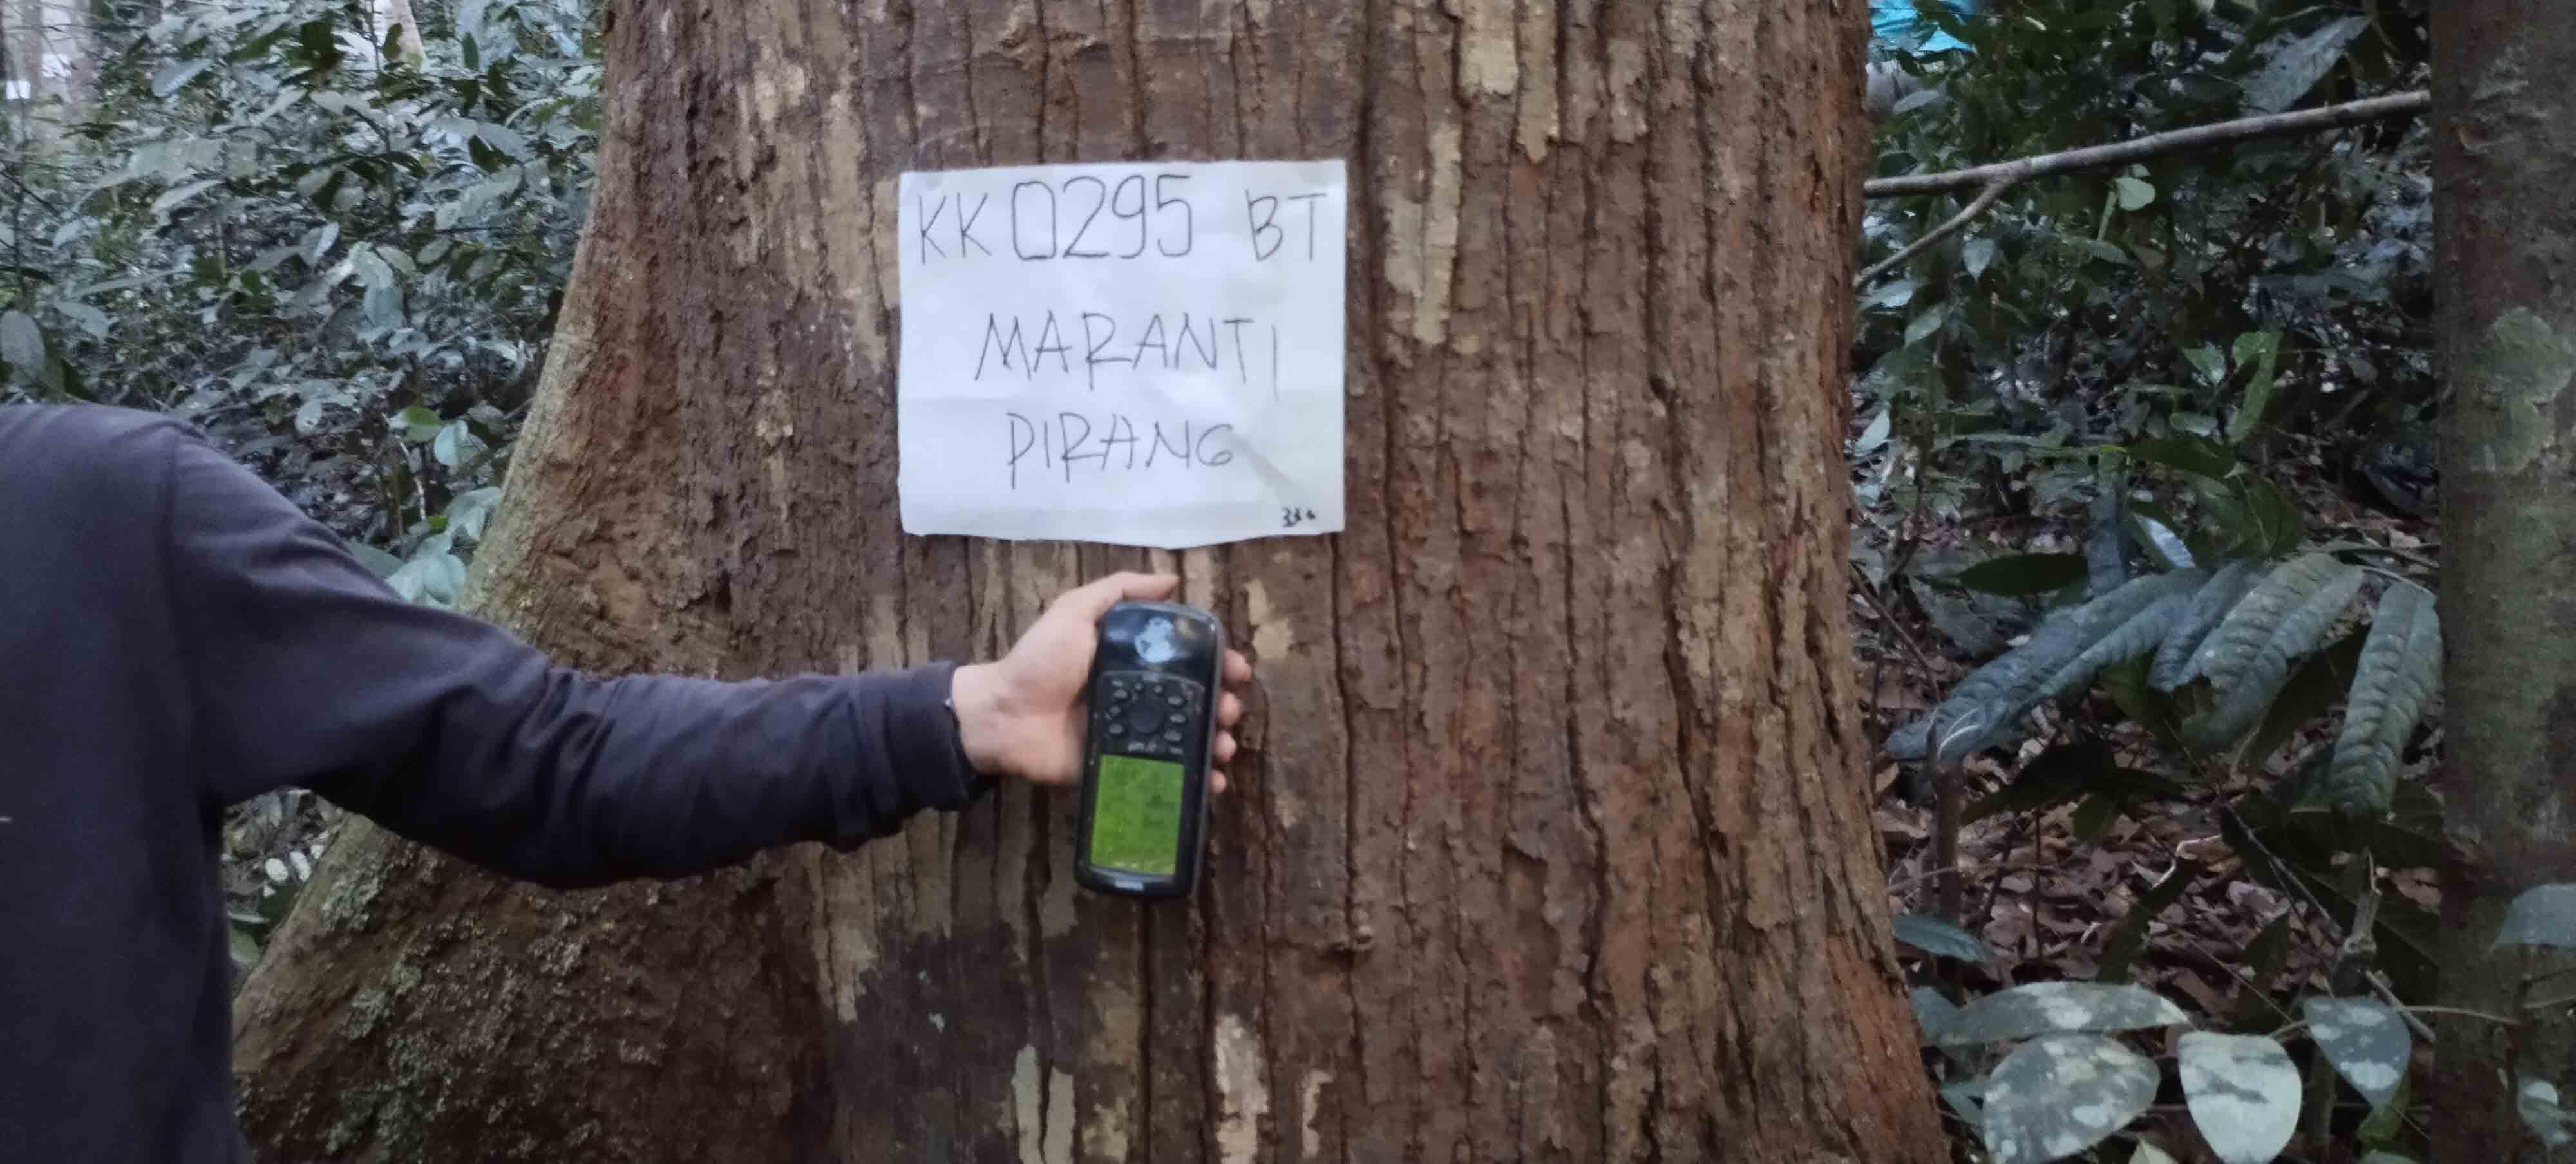 KK0295 BT
MARANTI
PIRANG